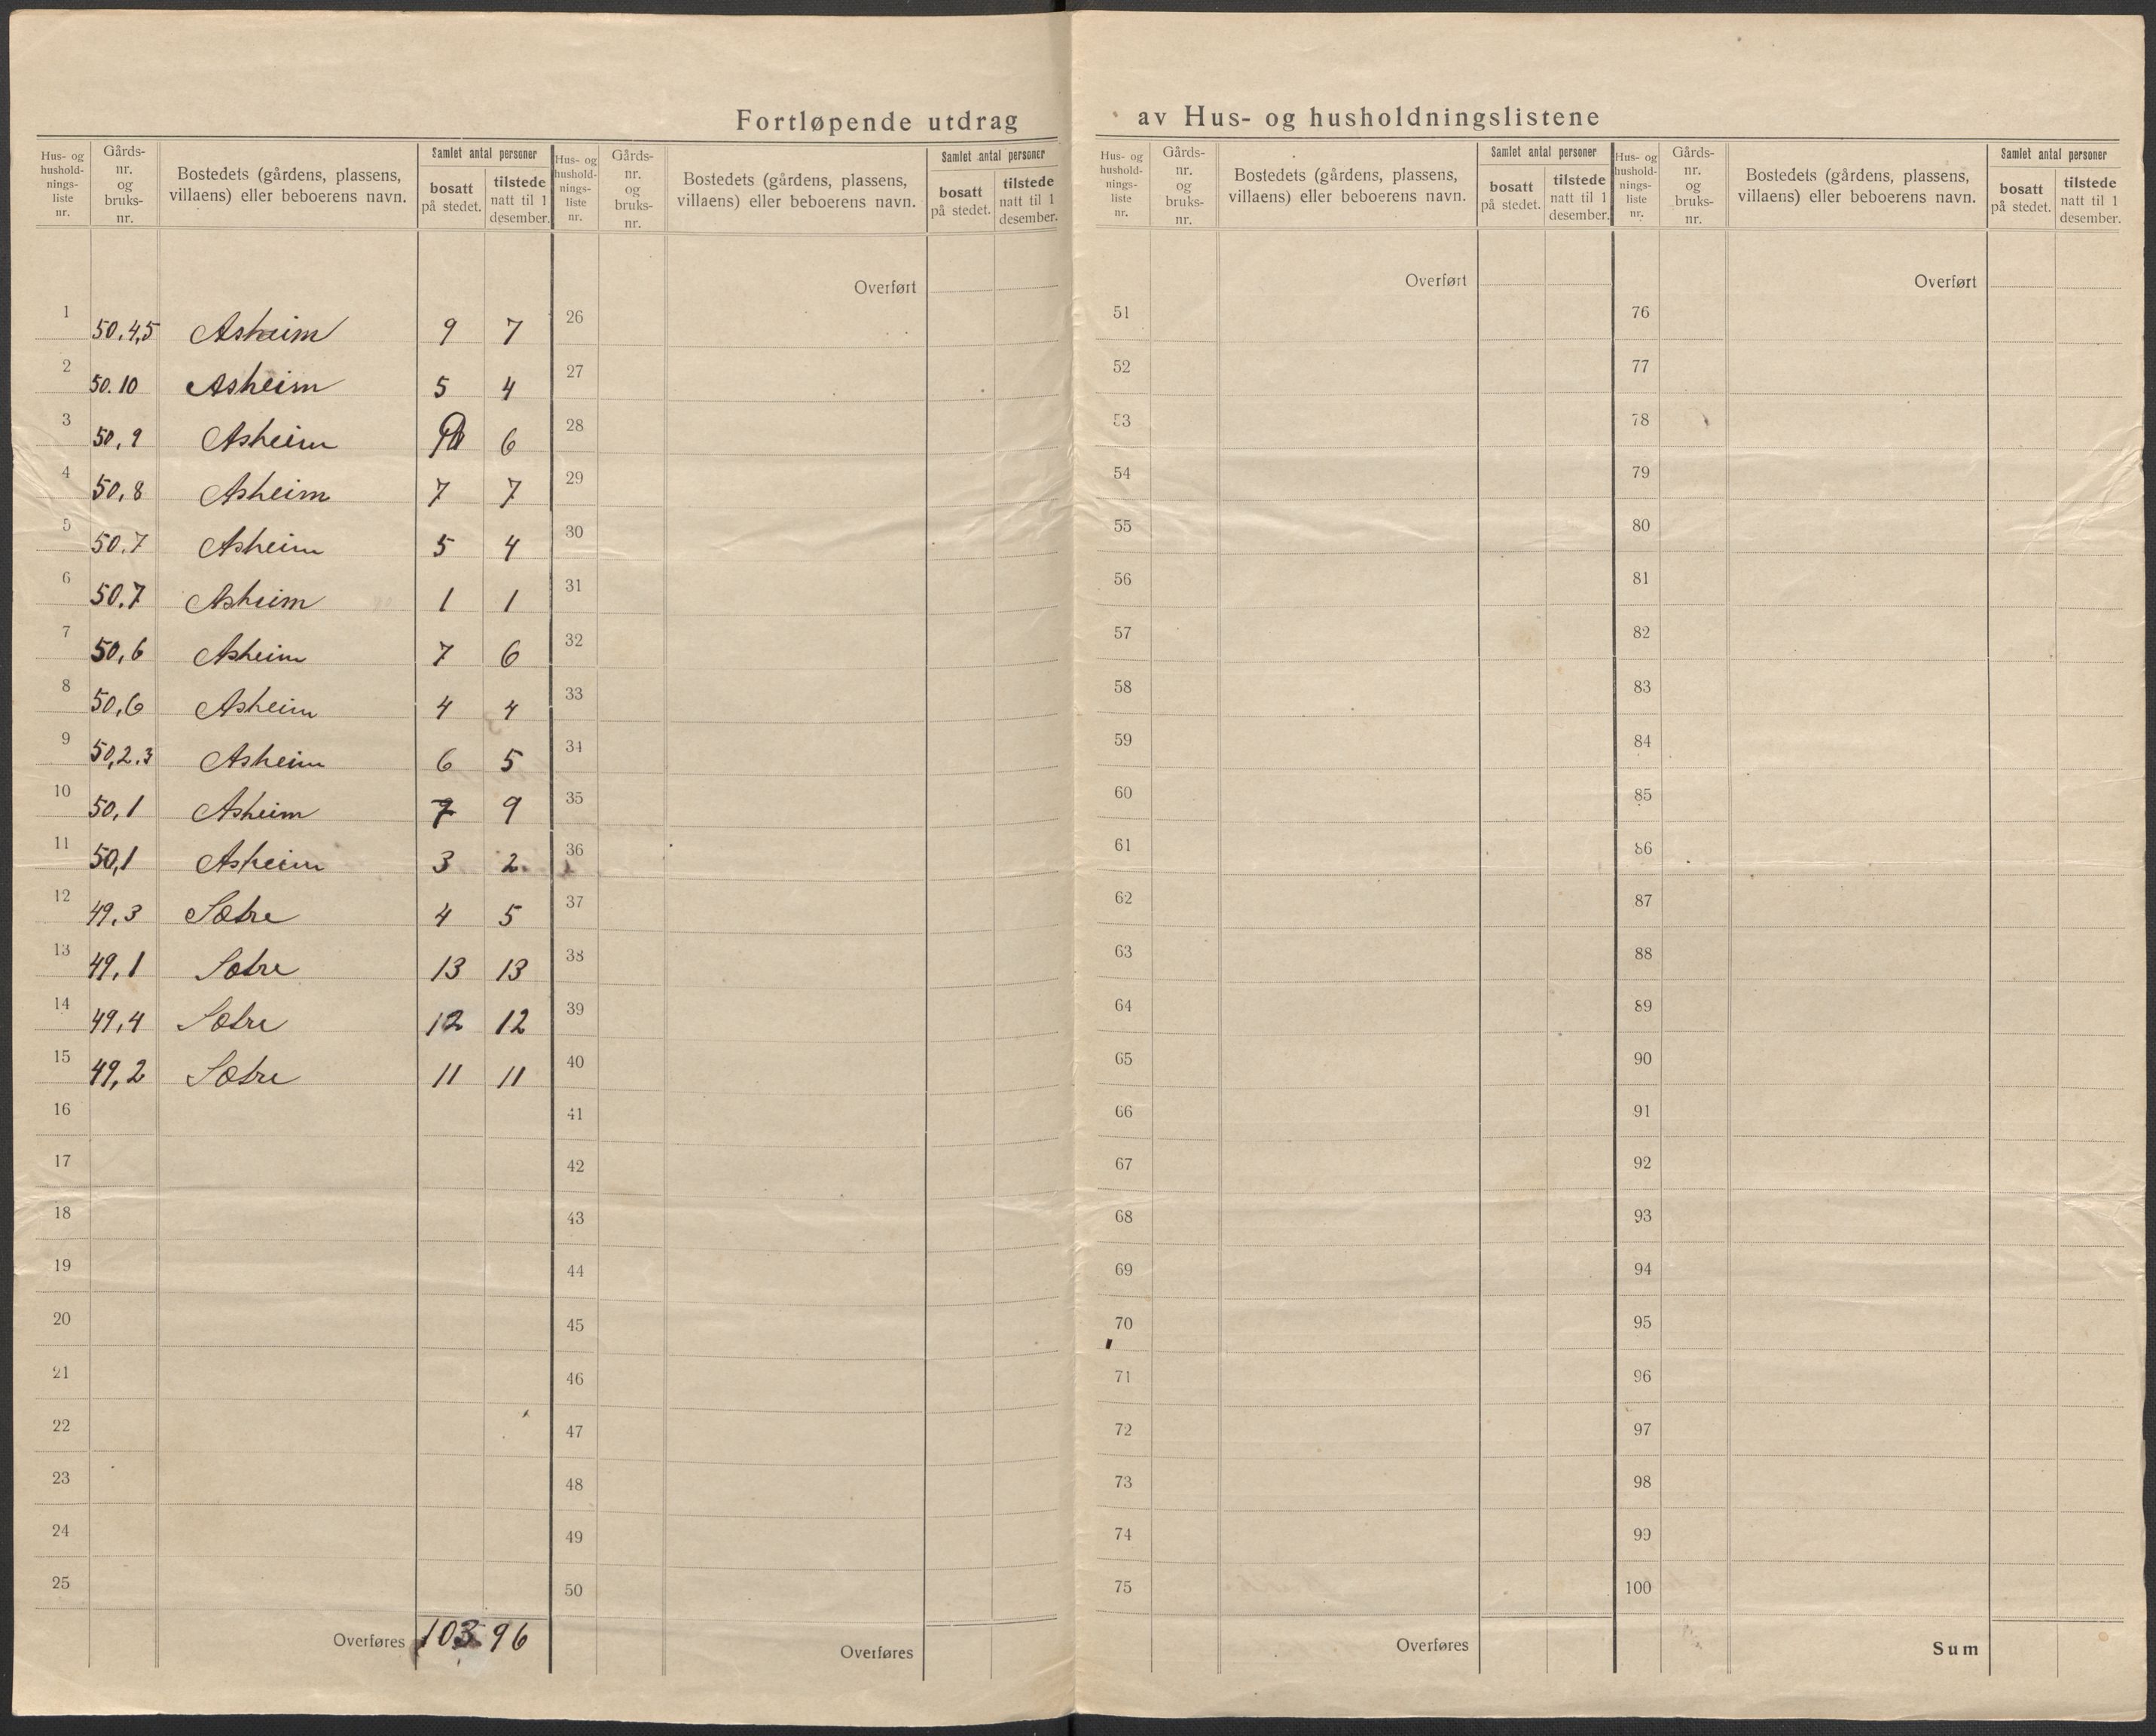 Fortløpende utdrag av Hus- og husholdningslistene
Hus- og hushold-nings-liste nr. Gårds-nr. og bruks-nr. Bostedets (gårdens, plassens, villaens) eller beboerens navn. Samlet antal personer bosatt på stedet. tilstede natt til 1 desember.
Hus- og hushold-nings-liste nr. Gårds-nr. og bruks-nr. Bostedets (gårdens, plassens, villaens) eller beboerens navn. Samlet antal personer bosatt på stedet. tilstede natt til 1 desember.
Hus- og hushold-nings-liste nr. Gårds-nr. og bruks-nr. Bostedets (gårdens, plassens, villaens) eller beboerens navn. Samlet antal personer bosatt på stedet. tilstede natt til 1 desember.
Hus- og hushold-nings-liste nr. Gårds-nr. og bruks-nr. Bostedets (gårdens, plassens, villaens) eller beboerens navn. Samlet antal personer bosatt på stedet. tilstede natt til 1 desember.
Overført Overført Overført
1 50.4,5 Asheim 9 7 26 51 76
2 50.10 Asheim 5 4 27 52 77
3 50,9 Asheim 6 28 53 78
4 50,8 Asheim 7 7 29 54 79
5 50.7 Asheim 5 4 30 55 80
6 50.7 Asheim 1 1 31 56 81
7 50,6 Asheim 7 6 32 57 82
8 50,6 Asheim 4 4 33 58 83
9 50,2.3 Asheim 6 5 34 59 84
10 50,1 Asheim 7 9 35 60 85
11 50,1 Asheim 3 2 36 61 86
12 49,3 Sætre 4 5 37 62 87
13 49,1 Sætre 13 13 38 63 88
14 49,4 Sætre 12 12 39 64 89
15 49,2 Sætre 11 11 40 65 90
16 41 66 91
17 42 67 92
18 43 68 93
19 44 69 94
20 45 70 95
21 46 71 96
22 47 72 97
23 48 73 98
24 49 74 99
25 50 75 100
Overføres 103 96 Overføres Overføres Sum